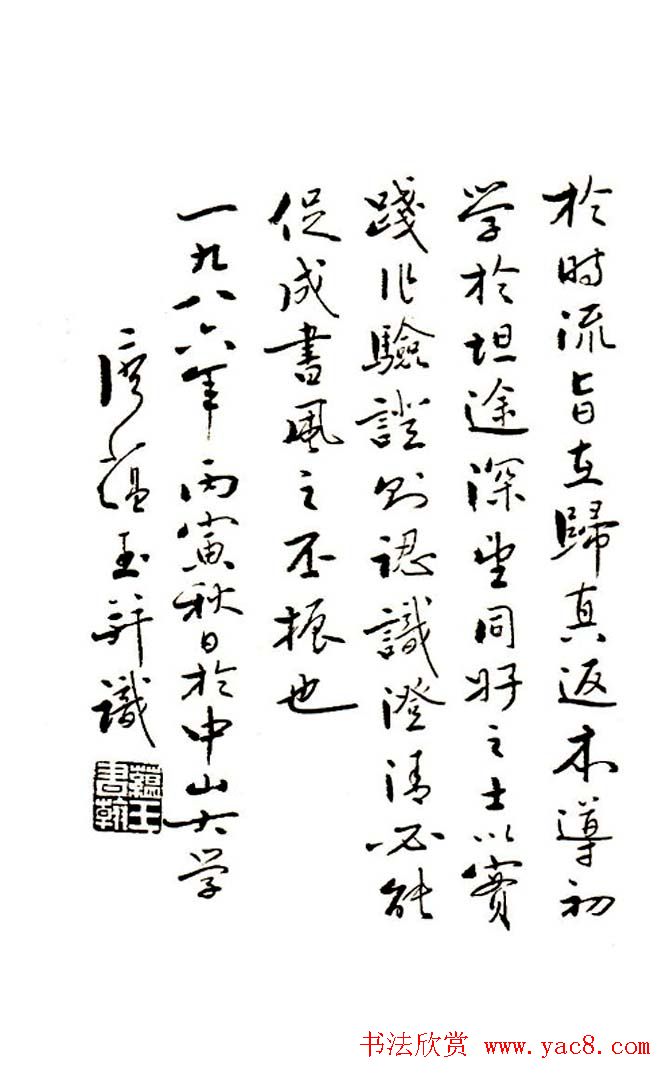 於時流旨在歸真返本導初
学於坦途深望同好之士以實
踐作驗證則認識澄清必能
促成書風之丕振也
一九八六年丙寅秋日於中山大学
廖蘊玉并識
蘊玉書翰
书法欣赏 www.yac8.com